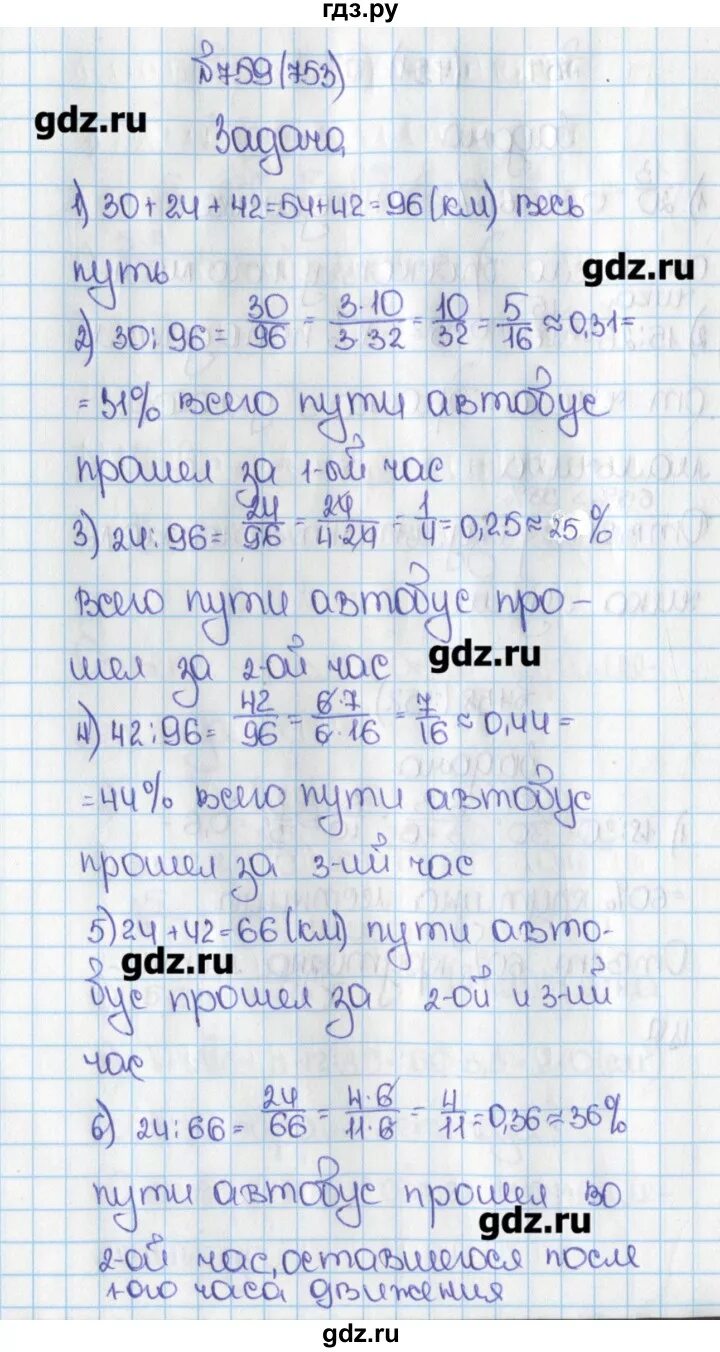 гдз.ру
№759(753)
gdz.ru
Задача
1) 30+24+42=54+42=96(км) весь
путь
gdz.ru
2) 30:96= 30/96 = 3·10/3·32 = 10/32 = 5/16 ≈ 0,31=
=31% всего пути автобус
прошел за 1-ой час
3) 24:96= 24/96 = 24/4·24 = 1/4 = 0,25 ≈ 25%
всего пути автобус про-
шел за 2-ой час
gdz.ru
4) 42:96= 42/96 = 6·7/6·16 = 7/16 ≈ 0,44=
=44% всего пути автобус
прошел за 3-ий час
5) 24+42=66(км) пути авто-
gdz.ru
бус прошел за 2-ой и 3-ий
час
6) 24:66= 24/66 = 4·6/11·6 = 4/11 = 0,36 ≈ 36%
пути автобус прошел во
gdz.ru
2-ой час, оставшегося после
1-ого часа движения
gdz.ru